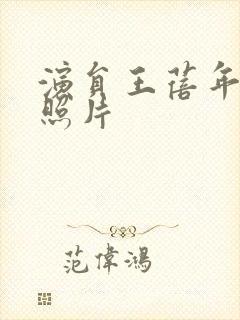 演員王蓓年
照片
范偉鴻